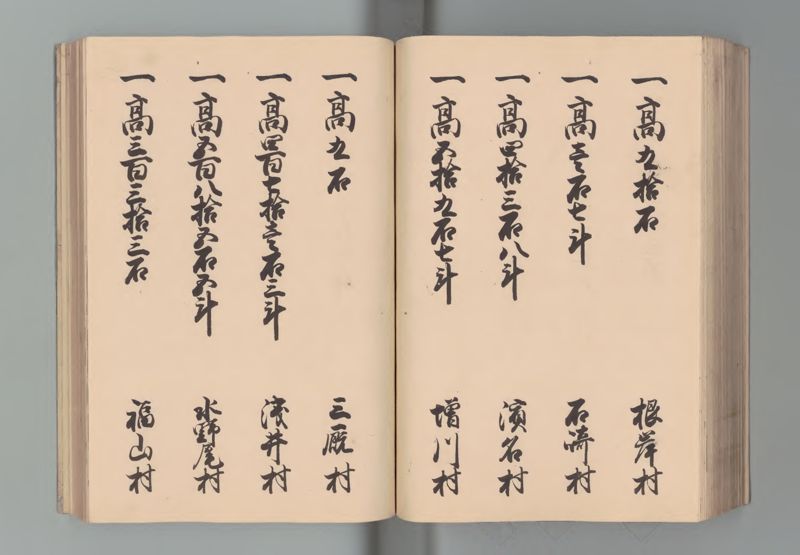 一高九拾石 根岸村
一高壱石七斗 石濤村
一高四拾三石八斗 濱名村
一高五拾九石七斗 増川村
一高九石 三厩村
一高四百七拾壱石三斗 浅井村
一高五百八拾五石五斗 水野尾村
一高三百三拾三石 福山村